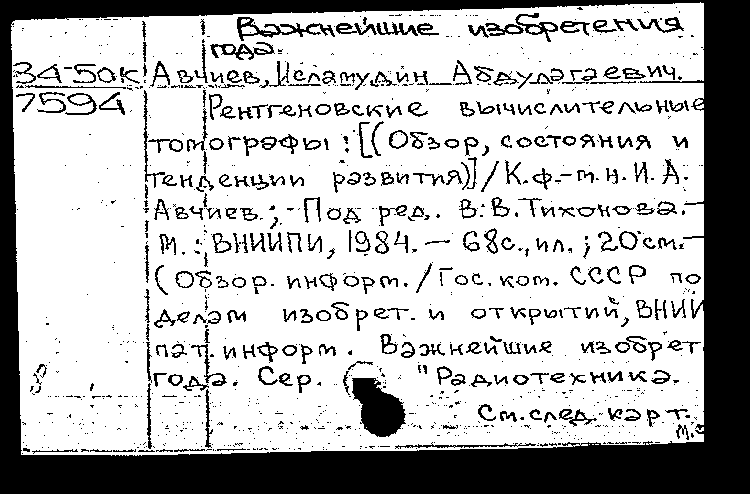 Важнейшие изобретения
года.
84-50к Авчиев, Исламудин Абдулагаевич.
7594 Рентгеновские вычислительные
томографы : [(Обзор, состояния и
тенденции развития)] / К.ф.-м.н. И.А.
Авчиев ; Под ред. В.В. Тихонова. -
М. : ВНИИПИ, 1984. - 68с., ил. ; 20см. -
(Обзор. информ. / Гос. ком. СССР по
делам изобрет. и открытий, ВНИИ
пат. информ. Важнейшие изобрет.
года. Сер. "Радиотехника.
См. след. карт.